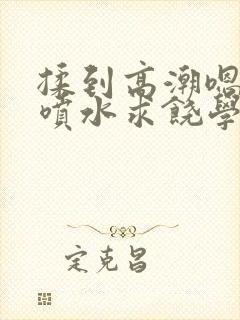 揉到高潮喝
噴水求饒學
定克昌